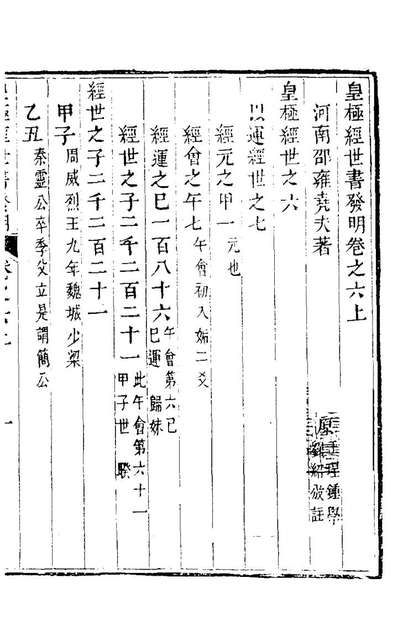 皇極經世書發明卷之六上
河南邵雍堯夫著
程鍾學
註
皇極經世之六
以運經世之七
經元之甲一 元也
經會之午七 午會初入姤二爻
經運之巳一百八十六 午會第六巳巳運歸妹
經世之子二千二百二十一 此午會第六十一甲子世睽
經世之子二千二百二十一
甲子 周威烈王九年魏城少梁
乙丑 秦靈公卒季父立是謂簡公
一